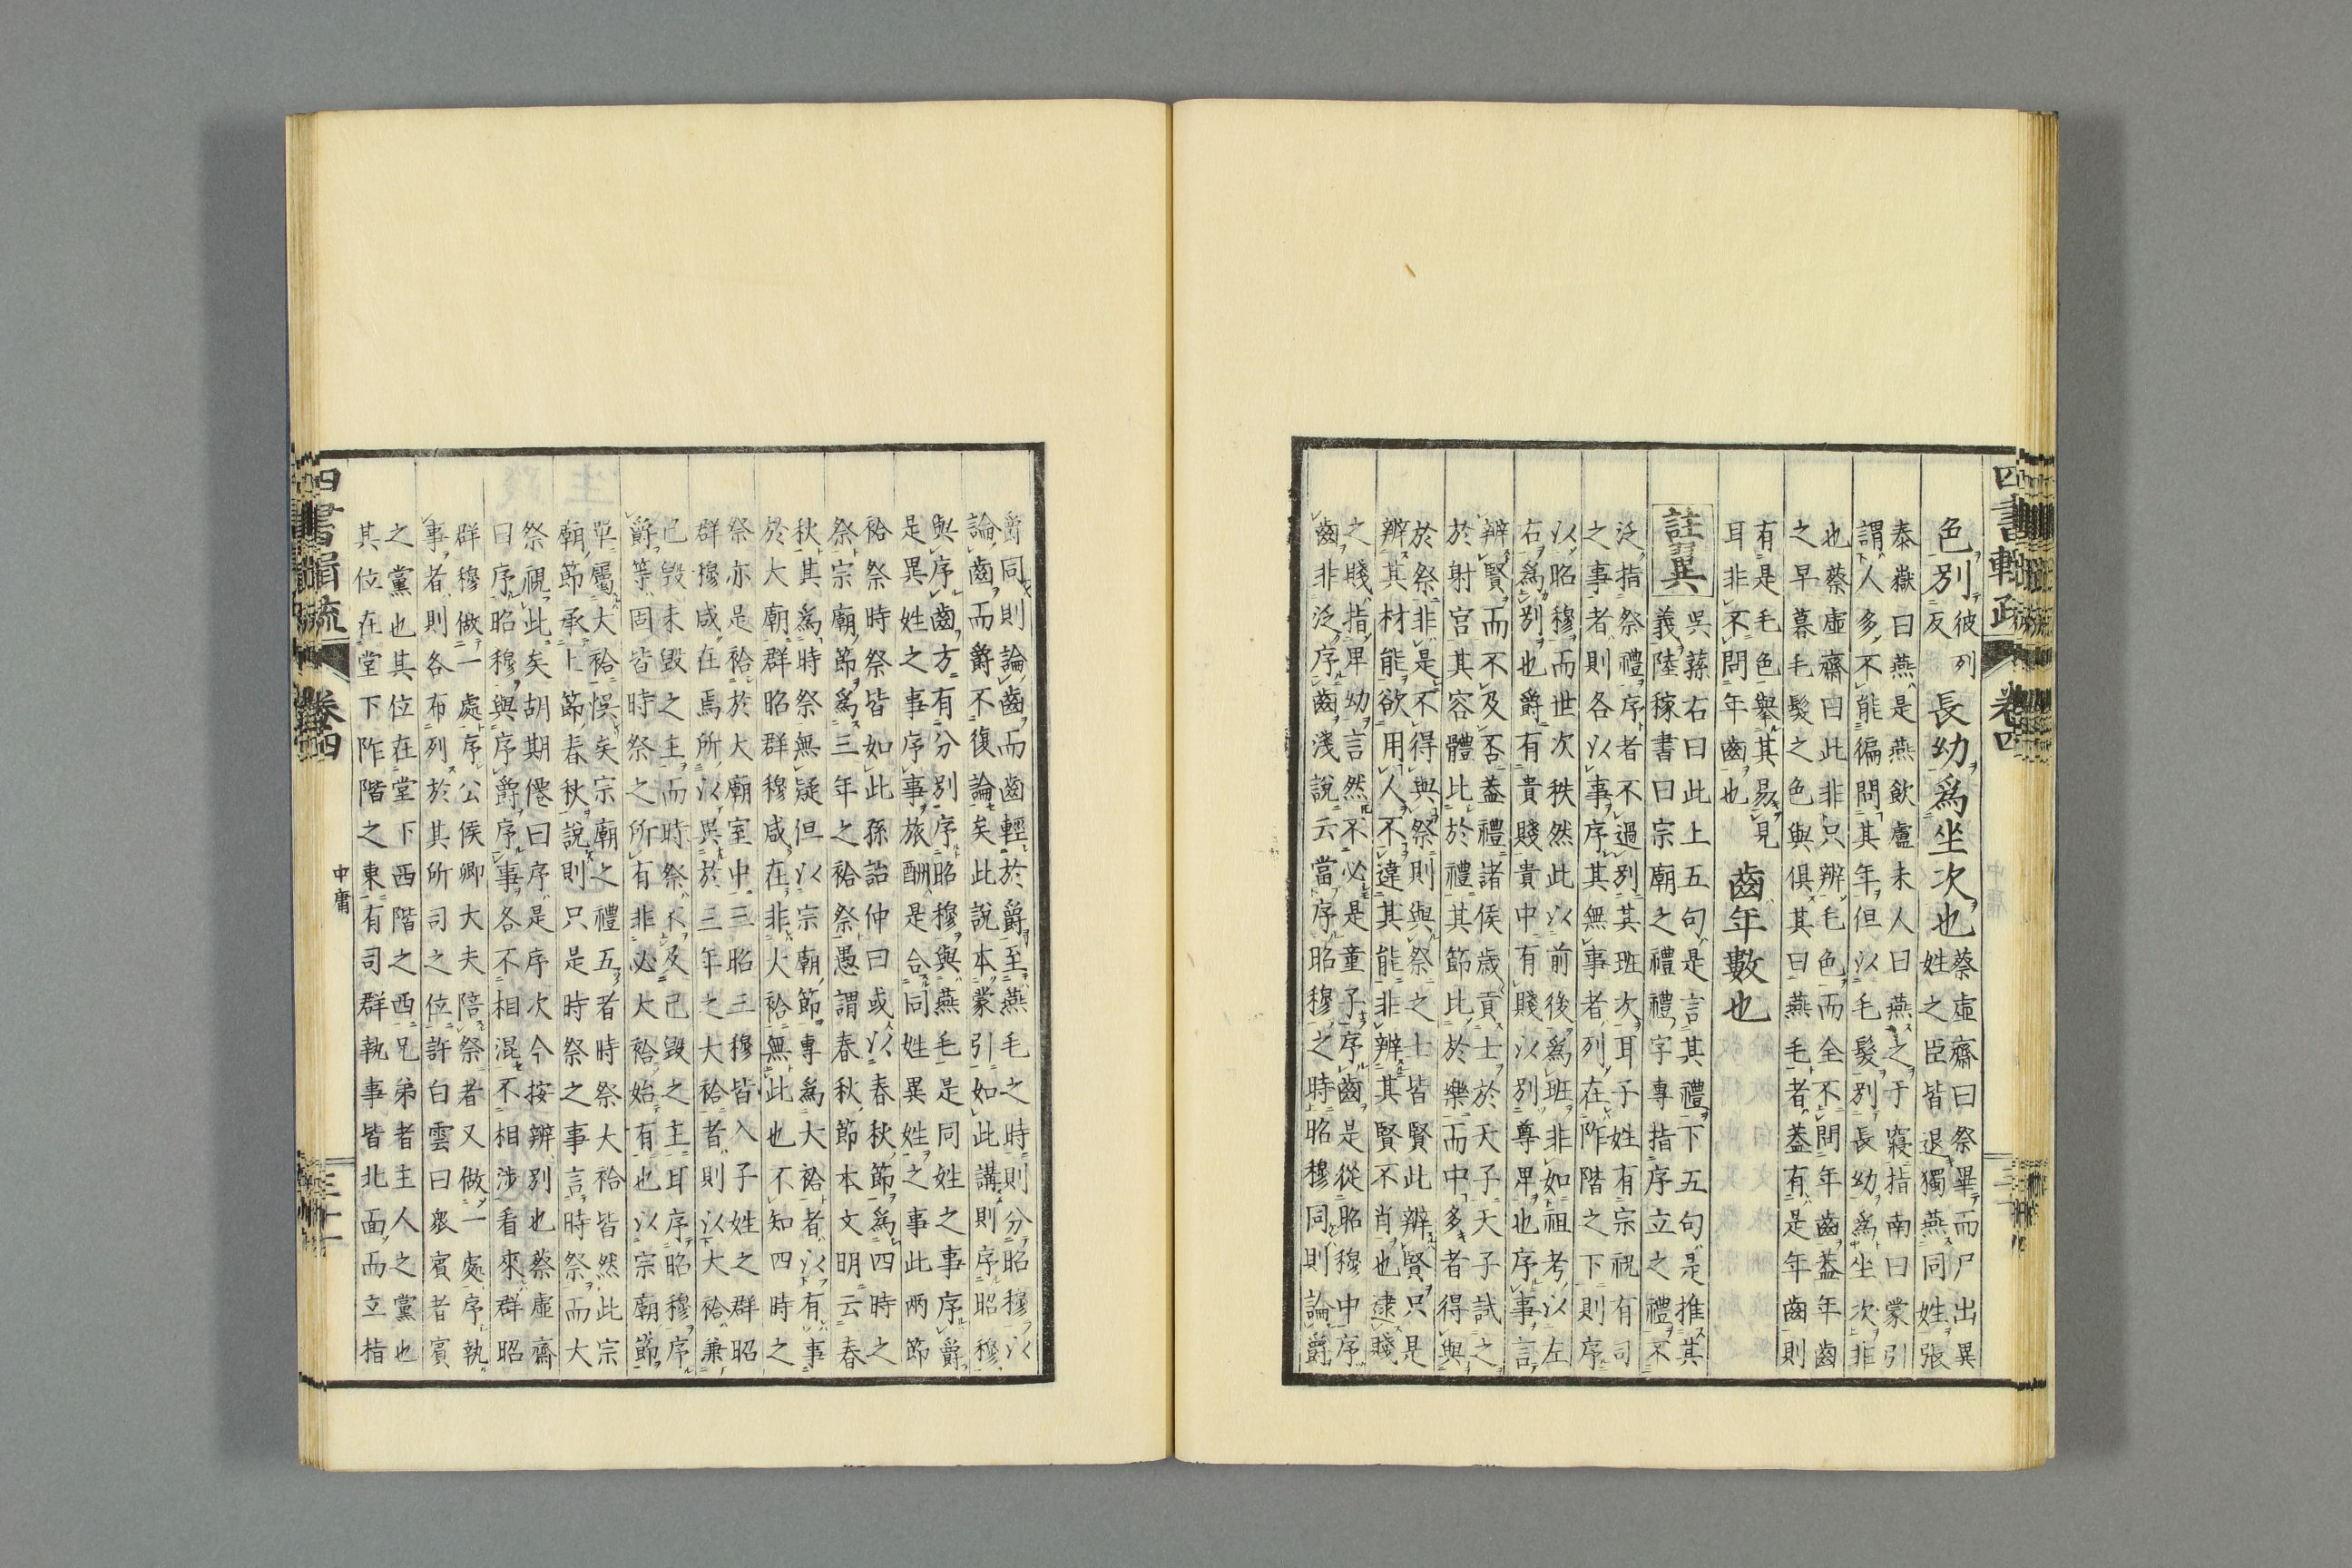 四書輯疏 卷四
色別彼列反長幼爲坐次也蔡虛齋曰祭畢而尸出異
姓之臣皆退獨燕同姓張
泰嶽曰燕是燕飲盧未人曰燕之于寢指南曰蒙引
謂人多不能徧問其年但以毛髮別長幼爲坐次非
也蔡虛齋曰此非只辨毛色而全不問年齒蓋年齒
之早暮毛髮之色與俱其曰燕毛者蓋有是年齒則
有是毛色舉其易見
耳非不問年齒也 齒年數也
註翼
吳蓀右曰此上五句是言其禮下五句是推其
義陸稼書曰宗廟之禮禮字專指序立之禮不
泛指祭禮序者不過別其班次耳子姓有宗祝有司
之事者則各以事序其無事者列在阼階之下則序
以昭穆而世次秩然此以前後爲班非如祖考以左
右爲別也爵有貴賤貴中有賤以別尊卑也序事言
辨賢而不及否蓋禮諸侯歲貢士於天子天子試之
於射宮其容體比於禮其節比於樂而中多者得與
於祭非是不得與祭則與祭之士皆賢此辨賢只是
辨其材能欲用人不違其能非辨其賢不肖也逮賤
之賤指卑幼言然不必是童子序齒是從昭穆中序
齒非泛序齒淺說云當序昭穆之時昭穆同則論爵
爵同則論齒而齒輕於爵至燕毛之時則分昭穆以
論齒而爵不復論矣此說本蒙引如此講則序昭穆
與序齒方有分別序昭穆與燕毛是同姓之事序爵
是異姓之事序事旅酬是合同姓異姓之事此兩節
祫祭時祭皆如此孫詒仲曰或以春秋節爲四時之
祭宗廟節爲三年之祫祭愚謂春秋節本文明云春
秋其爲時祭無疑但以宗廟節專爲大祫者以有事
於大廟群昭群穆咸在非大祫無此也不知四時之
祭亦是祫於大廟室中三昭三穆皆入子姓之群昭
群穆咸在焉所以異於三年之大祫者則以大祫兼
已毀未毀之主而時祭不及已毀之主耳序昭穆序
爵等固皆時祭之所有非必大祫始有也以宗廟節
單屬大祫悞矣宗廟之禮五者時祭大祫皆然此宗
廟節承上節春秋說則只是時祭之事言時祭而大
祭視此矣胡期僊曰序是序次今按辨別也蔡虛齋
曰序昭穆與序爵序事各不相混不相涉看來群昭
群穆做一處序公侯卿大夫陪祭者又做一處序執
事者則各布列於其所司之位許白雲曰衆賓者賓
之黨也其位在堂下西階之西兄弟者主人之黨也
其位在堂下阼階之東有司群執事皆北面而立指
四書輯疏 卷四 中庸